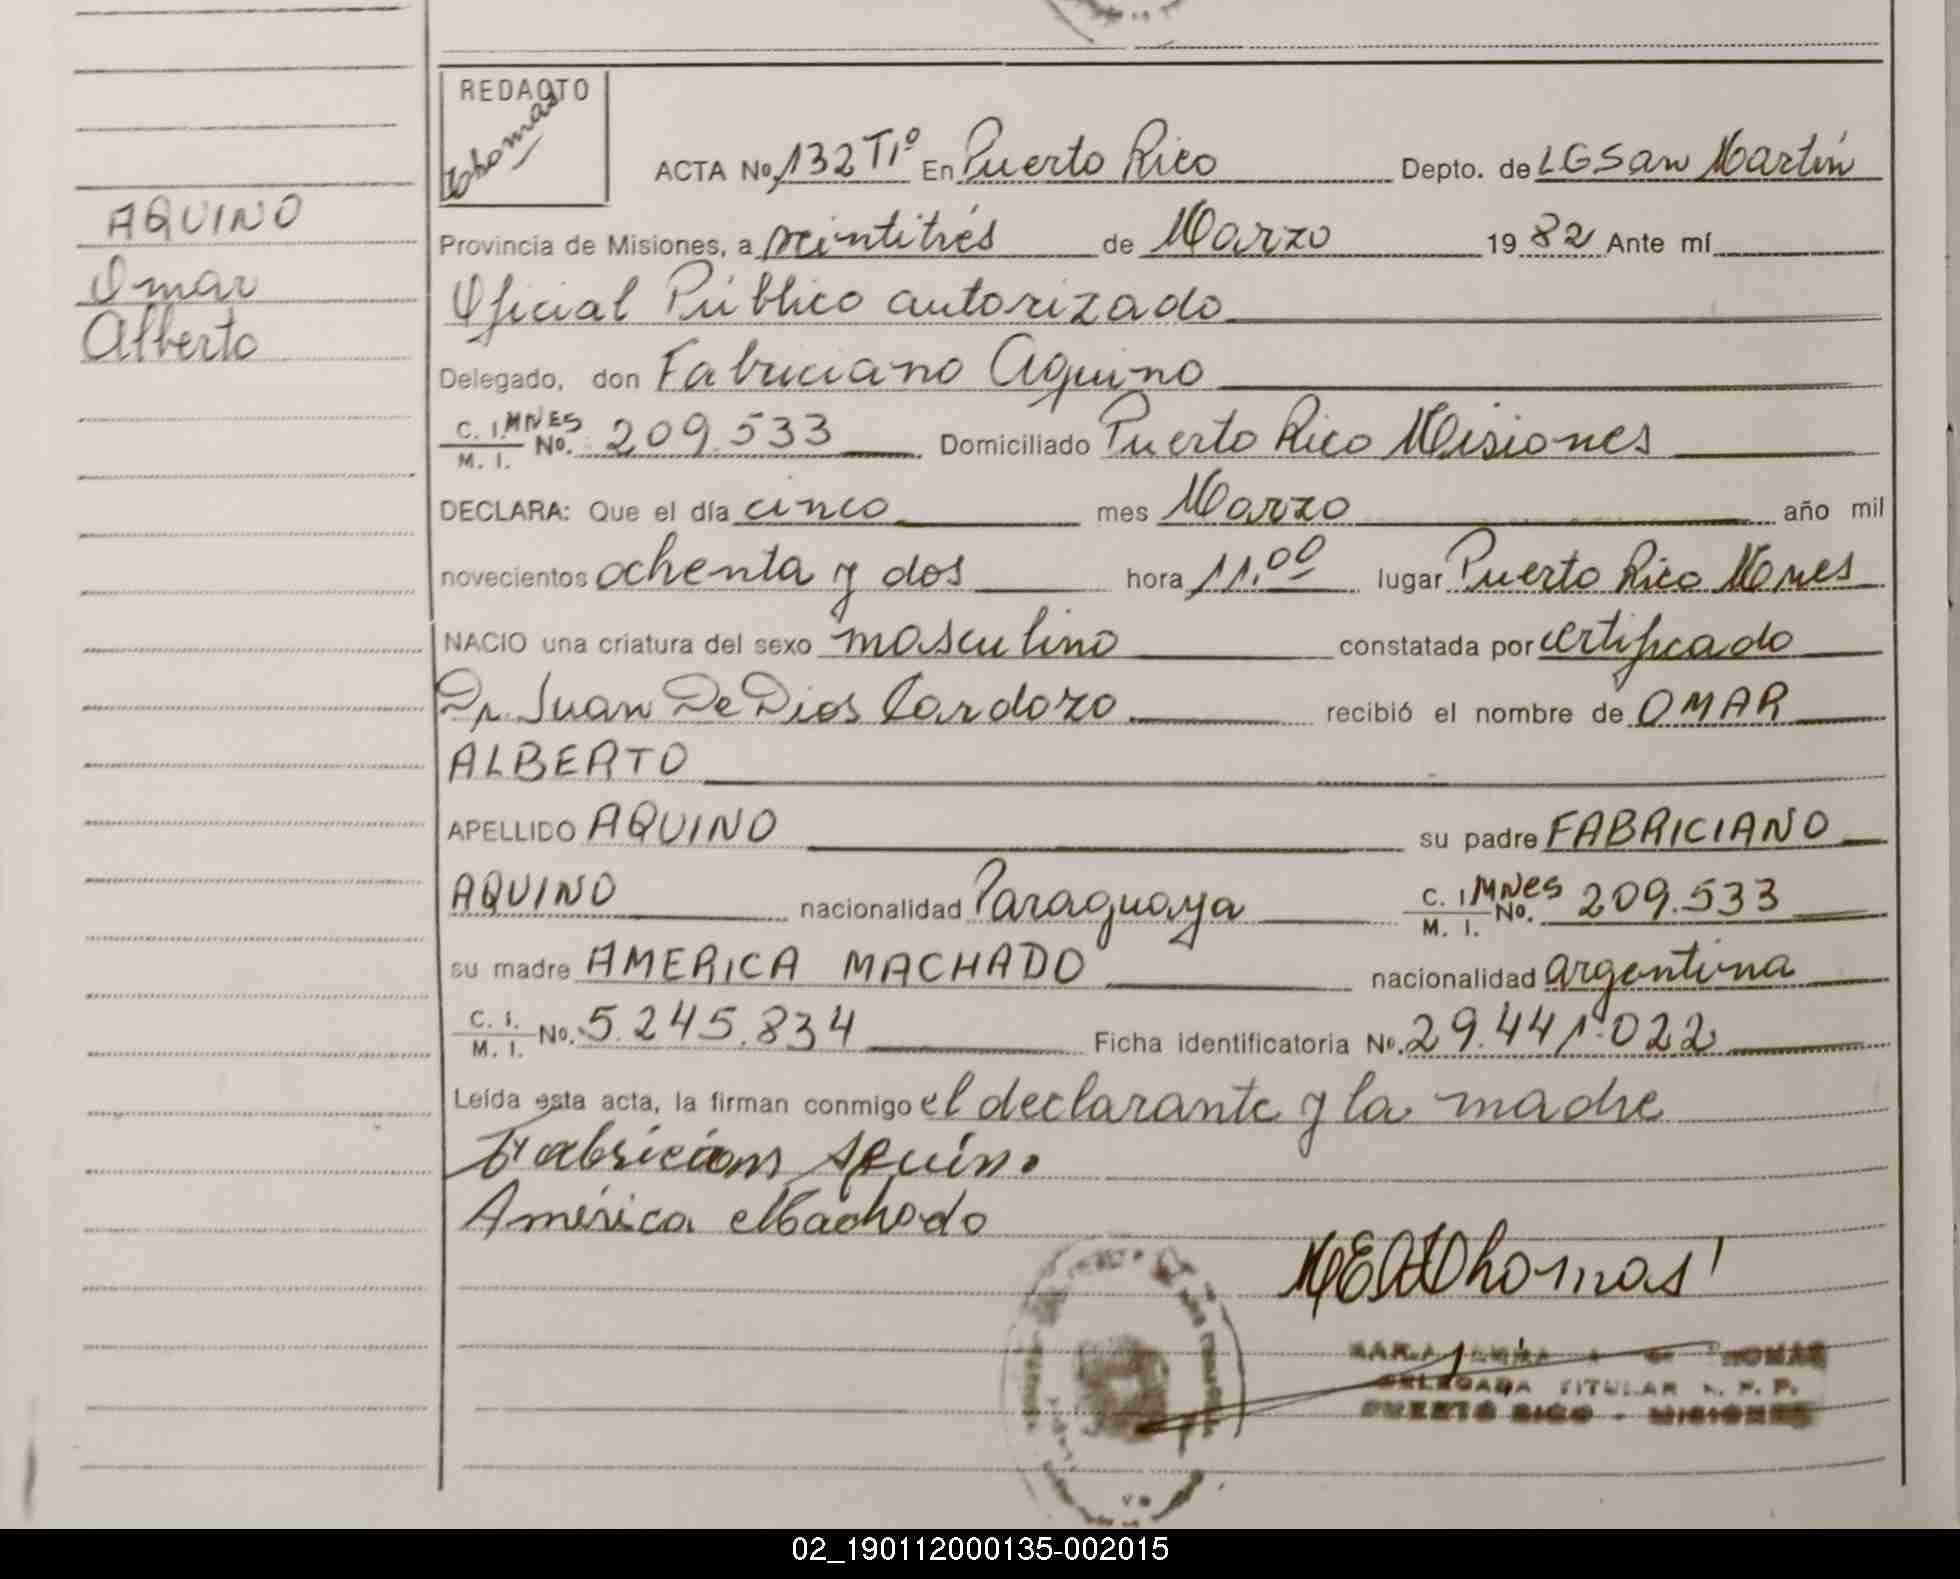 REDACTO
Thomas
ACTA No. 132 Tº En Puerto Rico Depto. de LGSan Martín
AQUINO
Omar
Alberto
Provincia de Misiones, a veintitrés de Marzo 1982 Ante mí
Oficial Público autorizado
Delegado, don Fabriciano Aquino
C. I. MNES
M. I. No. 209.533 Domiciliado Puerto Rico Misiones
DECLARA: Que el día cinco mes Marzo año mil
novecientos ochenta y dos hora 11.00 lugar Puerto Rico Mnes
NACIO una criatura del sexo masculino constatada por certificado
Dr. Juan De Dios Cardozo recibió el nombre de OMAR
ALBERTO
APELLIDO AQUINO su padre FABRICIANO
AQUINO nacionalidad Paraguaya C. I. MNes
M. I. No. 209.533
su madre AMERICA MACHADO nacionalidad argentina
C. I.
M. I. No. 5.245.834 Ficha identificatoria No. 29.441.022
Leída esta acta, la firman conmigo el declarante y la madre
Fabricians Aquino
América Machado
Thomas
THOMAS
DELEGADA TITULAR R. P. P.
PUERTO RICO - MISIONES
02_190112000135-002015